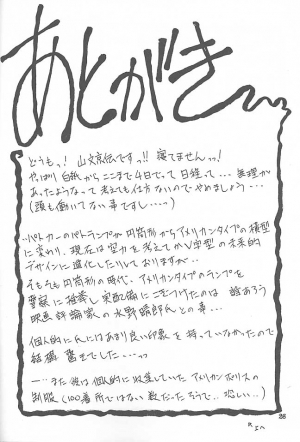 あとがき
どうもっ! 山文京伝ですっ!! 寝てませんっっ!
やっぱり 白紙からここまで4日でって 日程って・・・無理が
あったようなって考えても仕方ないのでやめましょう・・・
(頭も働いてない事ですし・・・・)
パトカーのパトランプが円筒形からアメリカンタイプの横型
に変わり、現在は空力を考えてかV字型の未来的
デザインに進化したりしておりますが・・
そもそも円筒形の時代、アメリカンタイプのランプを
警察に推薦し実配備にこぎつけたのは 誰あろう
映画評論家の水野晴郎氏との事・・・
個人的に氏にはあまり良い印象を持っていなかったので
結構 驚きでした・・・・っっ
ー・・また 彼は個人的に収集していた アメリカンポリスの
制服 (100着所ではない数だったそうで・・恐い・・・)
35